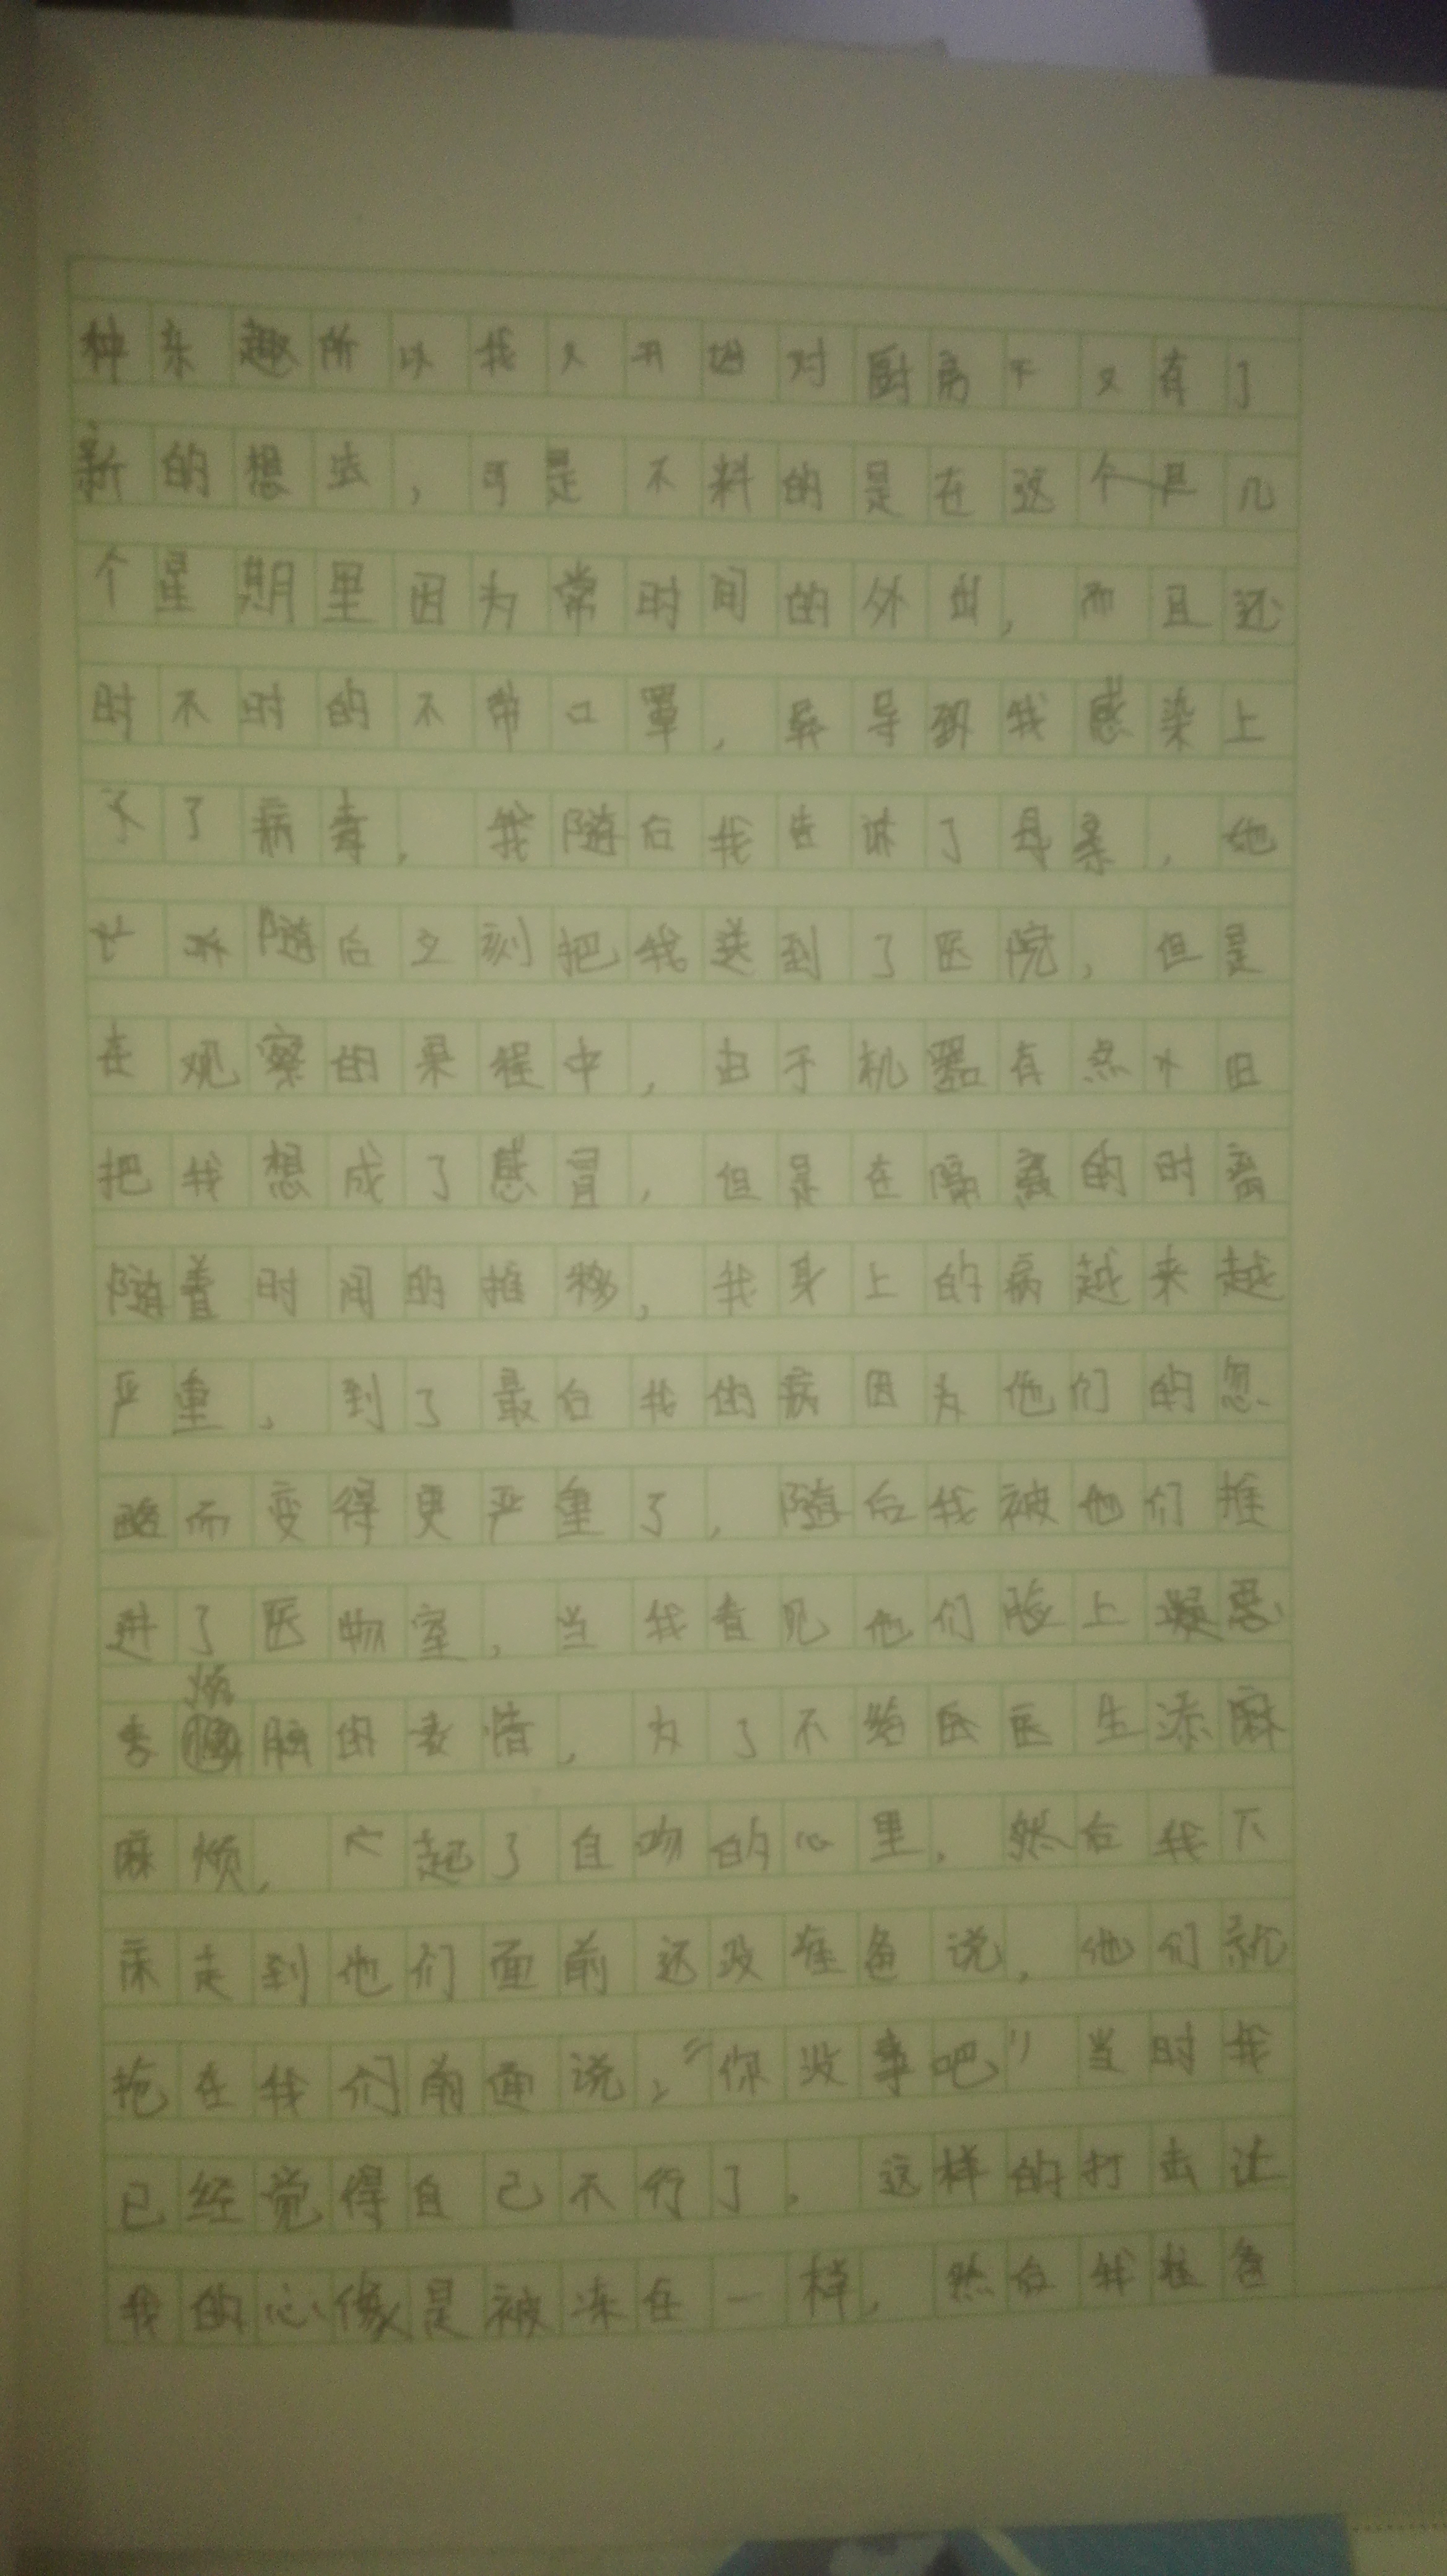 种乐趣所以我又开始对厨房下又有了
新的想法，可是不料的是在这个月几
个星期里因为常时间的外出，而且还
时不时的不带口罩，导导致我感染上
了病毒，我随后我告诉了母亲，她
随后立刻把我送到了医院，但是
在观察的果程中，由于机器有点旧
把我想成了感冒，但是在隔离的时离
随着时间的推移，我身上的病越来越
严重，到了最后我的病因为他们的忽
略而变得更严重了，随后我被他们推
进了医物室，当我看见他们脸上凝惑
烦
脑的表情，为了不给医医生添麻
麻烦，起了自吻的心里，然后我下
床走到他们面前还没准备说，他们就
抢在我们前面说，“你没事吧”当时我
已经觉得自己不行了，这样的打击让
我的心像是被冻在一样，然后我准备